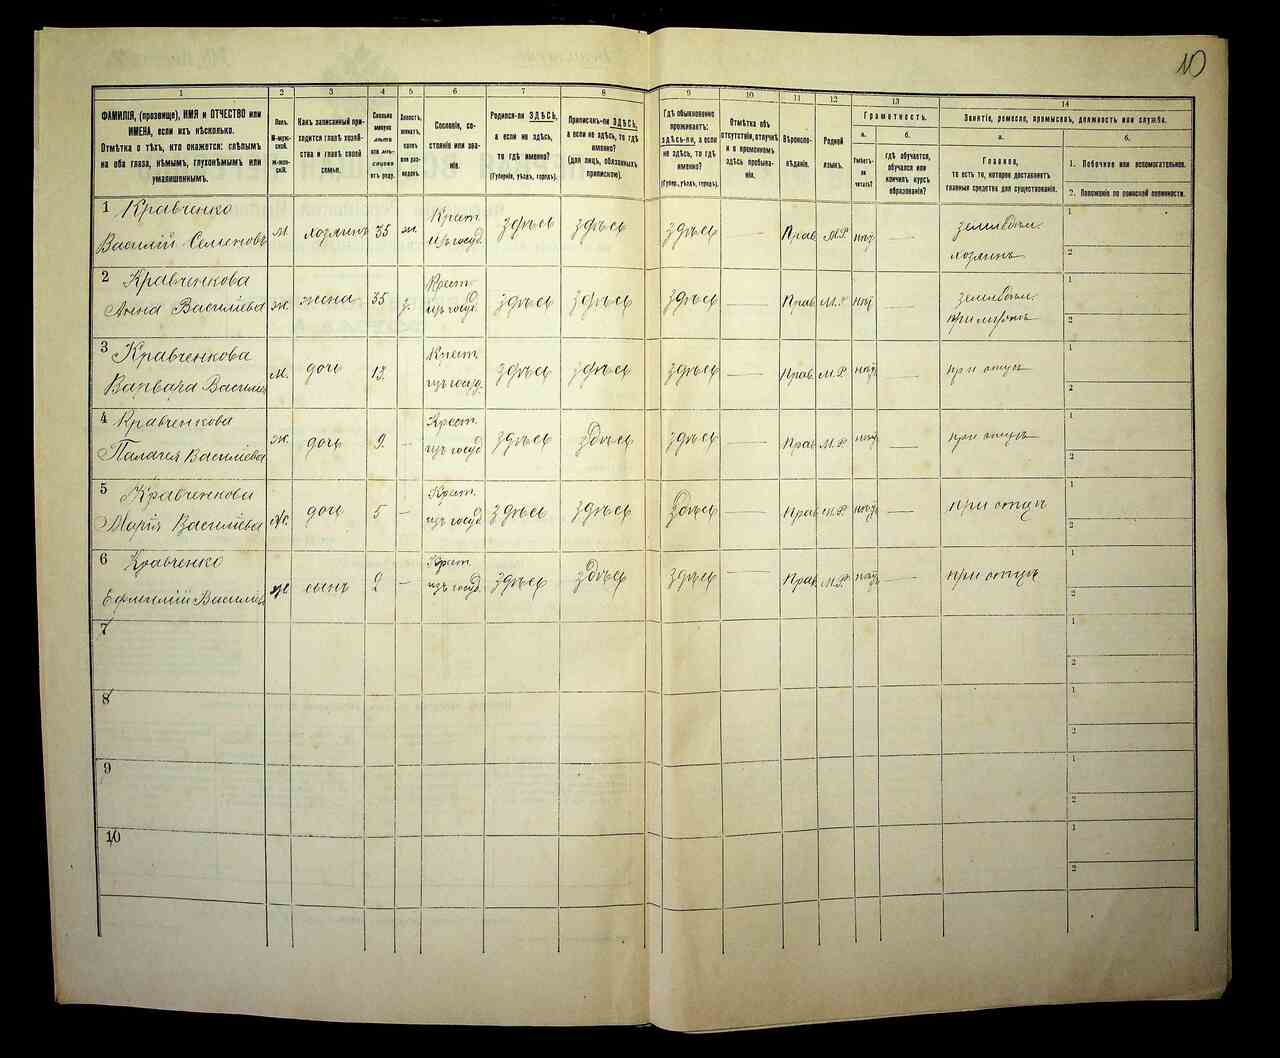 10
1 2 3 4 5 6 7 8 9 10 11 12 13 14
ФАМИЛІЯ, (прозвище), ИМЯ и ОТЧЕСТВО или
ИМЕНА, если ихъ нѣсколько.
Отмѣтка о тѣхъ, кто окажется: слѣпымъ
на оба глаза, нѣмымъ, глухонѣмымъ или
умалишеннымъ.
Полъ.
М-муж-
ской.
Ж-жен-
скій.
Какъ записанный при-
ходится главѣ хозяй-
ства и главѣ своей
семьи.
Сколько
минуло
лѣтъ
или мѣ-
сяцевъ
отъ роду.
Холостъ,
женатъ,
вдовъ
или раз-
веденъ.
Сословіе, со-
стояніе или зва-
ніе.
Родился-ли ЗДѢСЬ,
а если не здѣсь,
то гдѣ именно?
(Губернія, уѣздъ, городъ).
Приписанъ-ли ЗДѢСЬ,
а если не здѣсь, то гдѣ
именно?
(для лицъ, обязанныхъ
припискою).
Гдѣ обыкновенно
проживаетъ:
здѣсь-ли, а если
не здѣсь, то гдѣ
именно?
(Губер., уѣздъ, городъ).
Отмѣтка объ
отсутствіи, отлучкѣ
и о временномъ
здѣсь пребыва-
ніи.
Вѣроиспо-
вѣданіе.
Родной
языкъ.
Грамотность.
а.
Умѣетъ-
ли
читать?
б.
гдѣ обучается,
обучался или
кончилъ курсъ
образованія?
Занятіе, ремесло, промыселъ, должность или служба.
а.
Главное,
то есть то, которое доставляетъ
главныя средства для существованія.
б.
1. Побочное или вспомогательное.
2. Положеніе по воинской повинности.
1 Кравченко
Василій Семеновъ м. хозяинъ 35 ж. Крест. изъ госуд. здѣсь здѣсь здѣсь — Прав. М.Р. — земледѣл. хозяинъ 1 2
2 Кравченкова
Анна Василіева ж. жена 35 з. Крест. изъ госуд. здѣсь здѣсь здѣсь — Прав. М.Р. — земледѣл. 1 2
3 Кравченкова
Варвара м. дочь 13. Крест. изъ госуд. здѣсь здѣсь здѣсь — Прав. М.Р. — при отцѣ 1 2
4 Кравченкова
Палагея Василіева ж. дочь 9. — Крест. изъ госуд. здѣсь здѣсь здѣсь — Прав. М.Р. — при отцѣ 1 2
5 Кравченкова
Марія Василіева ж. дочь 5 — Крест. изъ госуд. здѣсь здѣсь здѣсь — Прав. М.Р. — при отцѣ 1 2
6 Кравченко
сынъ 2 — Крест. изъ госуд. здѣсь здѣсь здѣсь — Прав. М.Р. — при отцѣ 1 2
7 1 2
8 1 2
9 1 2
10 1 2